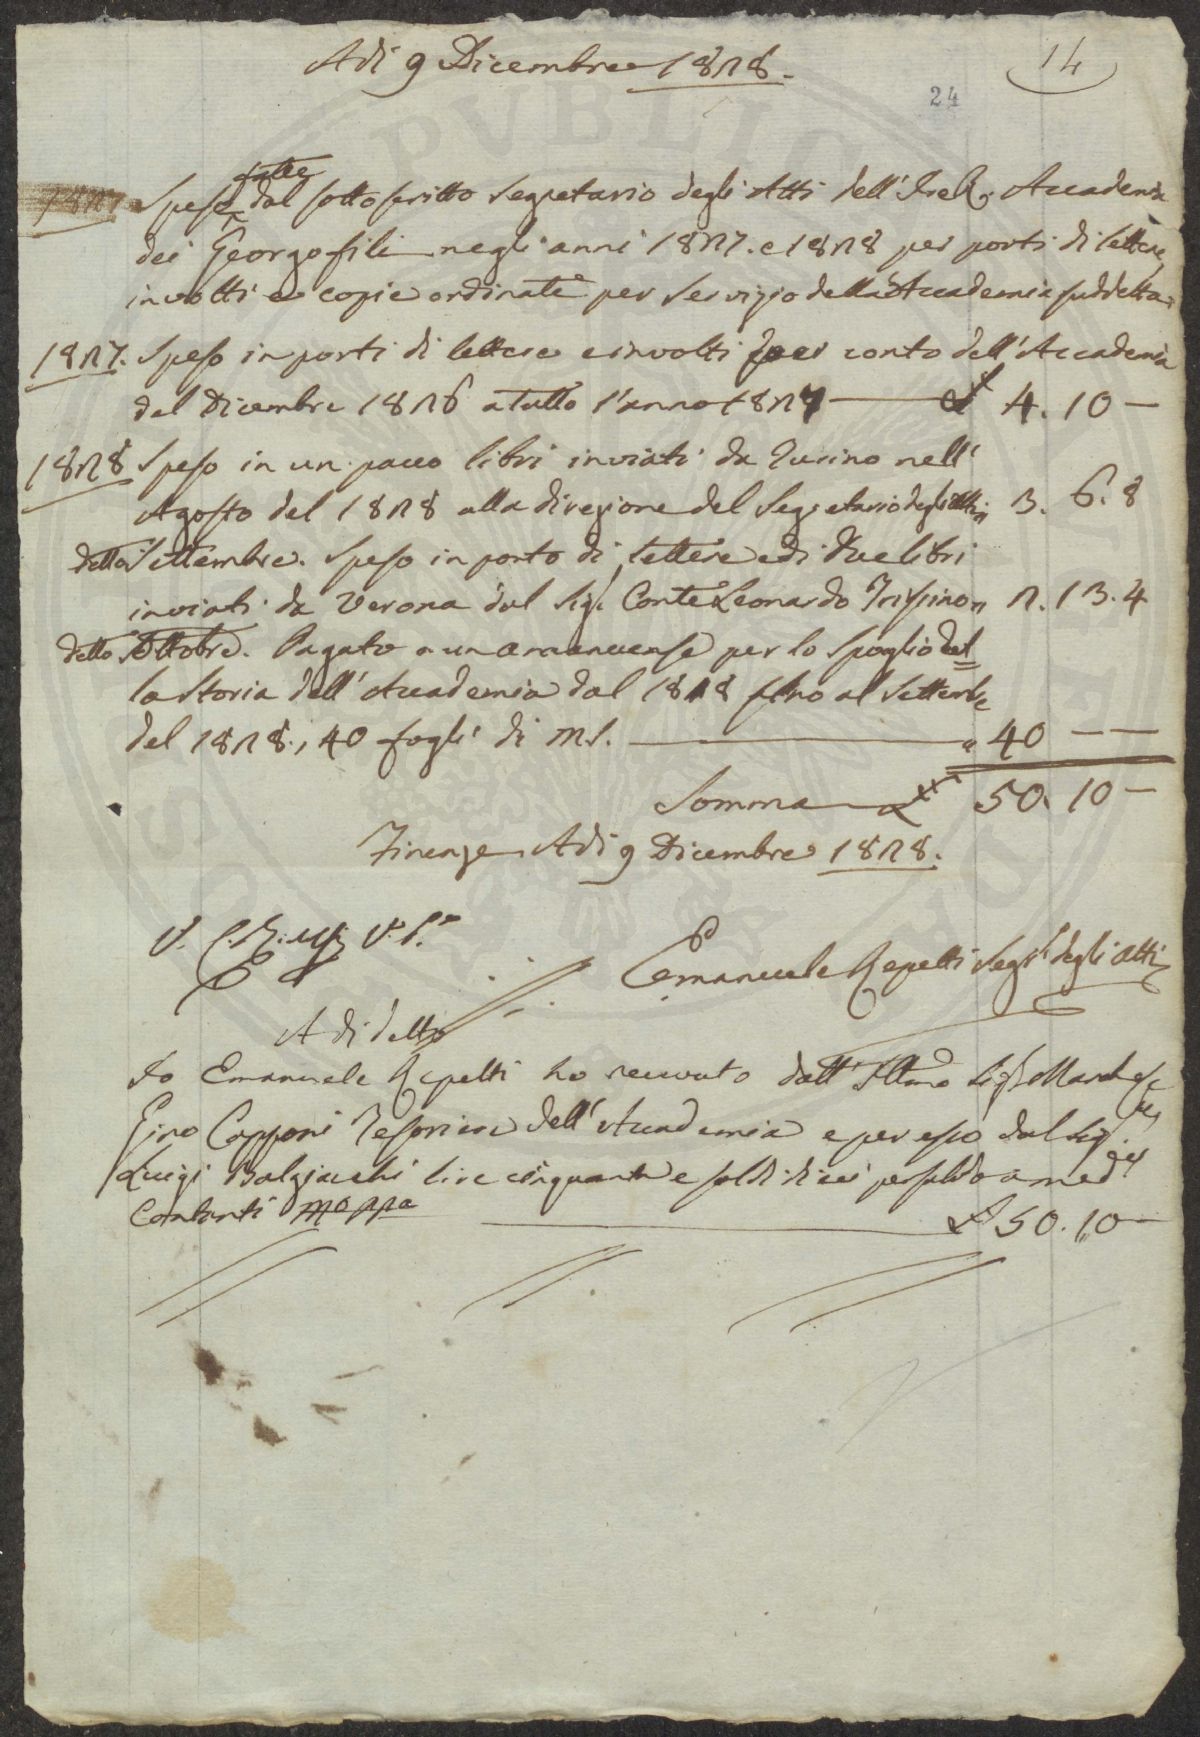 Adì 9 Dicembre 1828.
14
24
fatte
1827 Spese dal sottoscritto Segretario degli Atti dell' I. e R. Accademia
dei Georgofili negli anni 1827. e 1828 per porti di lettere
involti e copie ordinate per servizio della Accademia suddetta
1827. Speso in porti di lettere e involti per conto dell' Accademia
del Dicembre 1826 a tutto l'anno 1827 — £ 4. 10 —
1828 Speso in un pacco libri inviati da Turino nell'
Agosto del 1828 alla direzione del Segretario degli Atti „ 3. 6. 8
detto Settembre. Speso in porto di lettere e di due libri
inviati da Verona dal Sig.r Conte Leonardo Trissino „ 2. 13. 4
detto Ottobre. Pagato a un amanuense per lo spoglio del=
la Storia dell' Accademia dal 1818 fino al Settembre
del 1828., 40 fogli di m.s. — " 40 — —
Somma £ 50. 10 —
Firenze Adì 9 Dicembre 1828.
V. V. P.
Emanuele Repetti Seg.º degli Atti
A dì detto
Io Emanuele Repetti ho ricevuto dall' Ill.mo Sig.r Marchese
Gino Capponi Tesoriere dell' Accademia e per esso dal Sig.
Luigi lire cinquanta e soldi dieci per saldo
Contanti m.o pp.a — £ 50. 10 —